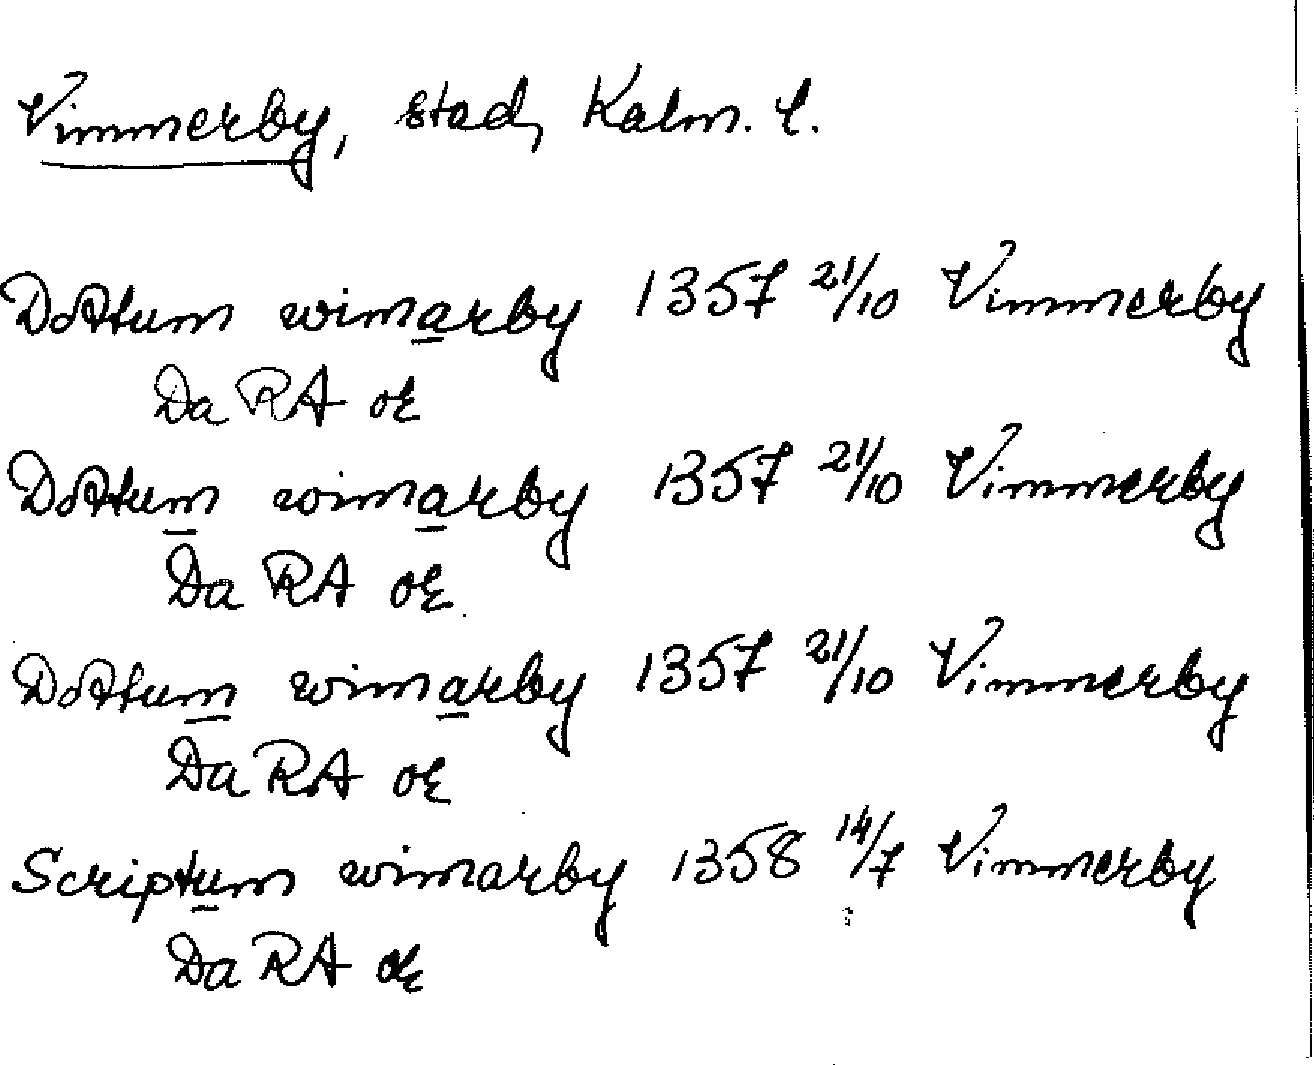 Vimmerby, stad, Kalm. l.
Dattum wimarby 1357 21/10 Vimmerby
Da RA or
Dattum wimarby 1357 21/10 Vimmerby
Da RA or
Dattum wimarby 1357 21/10 Vimmerby
Da RA or
Scriptum wimarby 1358 14/7 Vimmerby
Da RA or